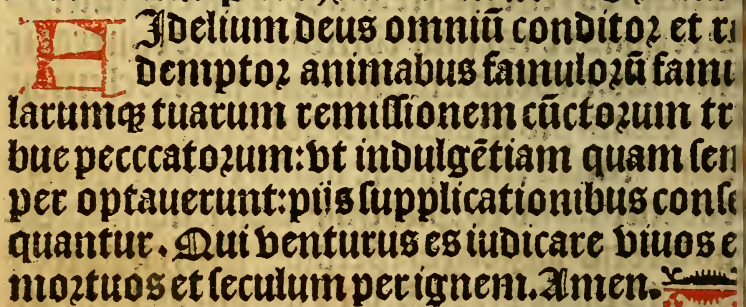 FIdelium deus omniũ conditor et r
demptor animabus famulorũ famu
larumqꝫ tuarum remissionem cũctorum tr
bue pecccatorum: vt indulgẽtiam quam sem
per optauerunt: piis supplicationibus conse
quantur. Qui venturus es iudicare viuos e
mortuos et seculum per ignem. Amen.